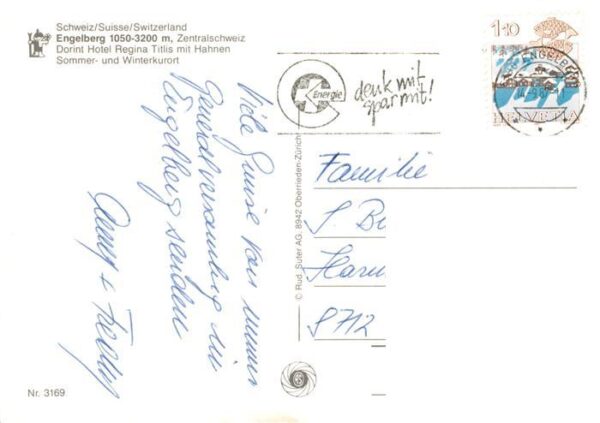 Schweiz/Suisse/Switzerland
Engelberg 1050-3200 m, Zentralschweiz
Dorint Hotel Regina Titlis mit Hahnen
Sommer- und Winterkurort
1 10
ENGELBERG
HELVETIA
Energie
denk mit
spar mit!
Viele Grüsse von unserer
Generalversammlung in
Engelberg senden
© Rud. Suter AG. 8942 Oberrieden-Zürich
Familie
S. Bi
8712
Nr. 3169